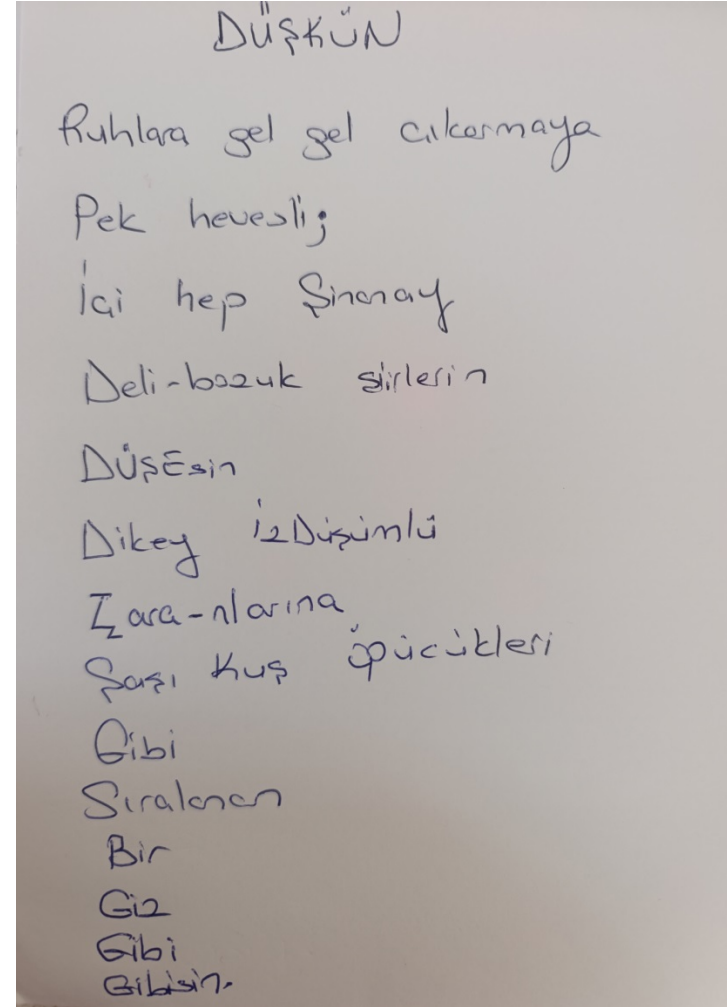 DÜŞKÜN
Ruhlara gel gel cıkarmaya
Pek hevesli;
İçi hep Şinanay
Deli-bozuk şiirlerin
DÜŞEsin
Dikey izDüşümlü
Izara-nlarına
Şaşı Kuş öpücükleri
Gibi
Sıralanan
Bir
Giz
Gibi
Gibisin.